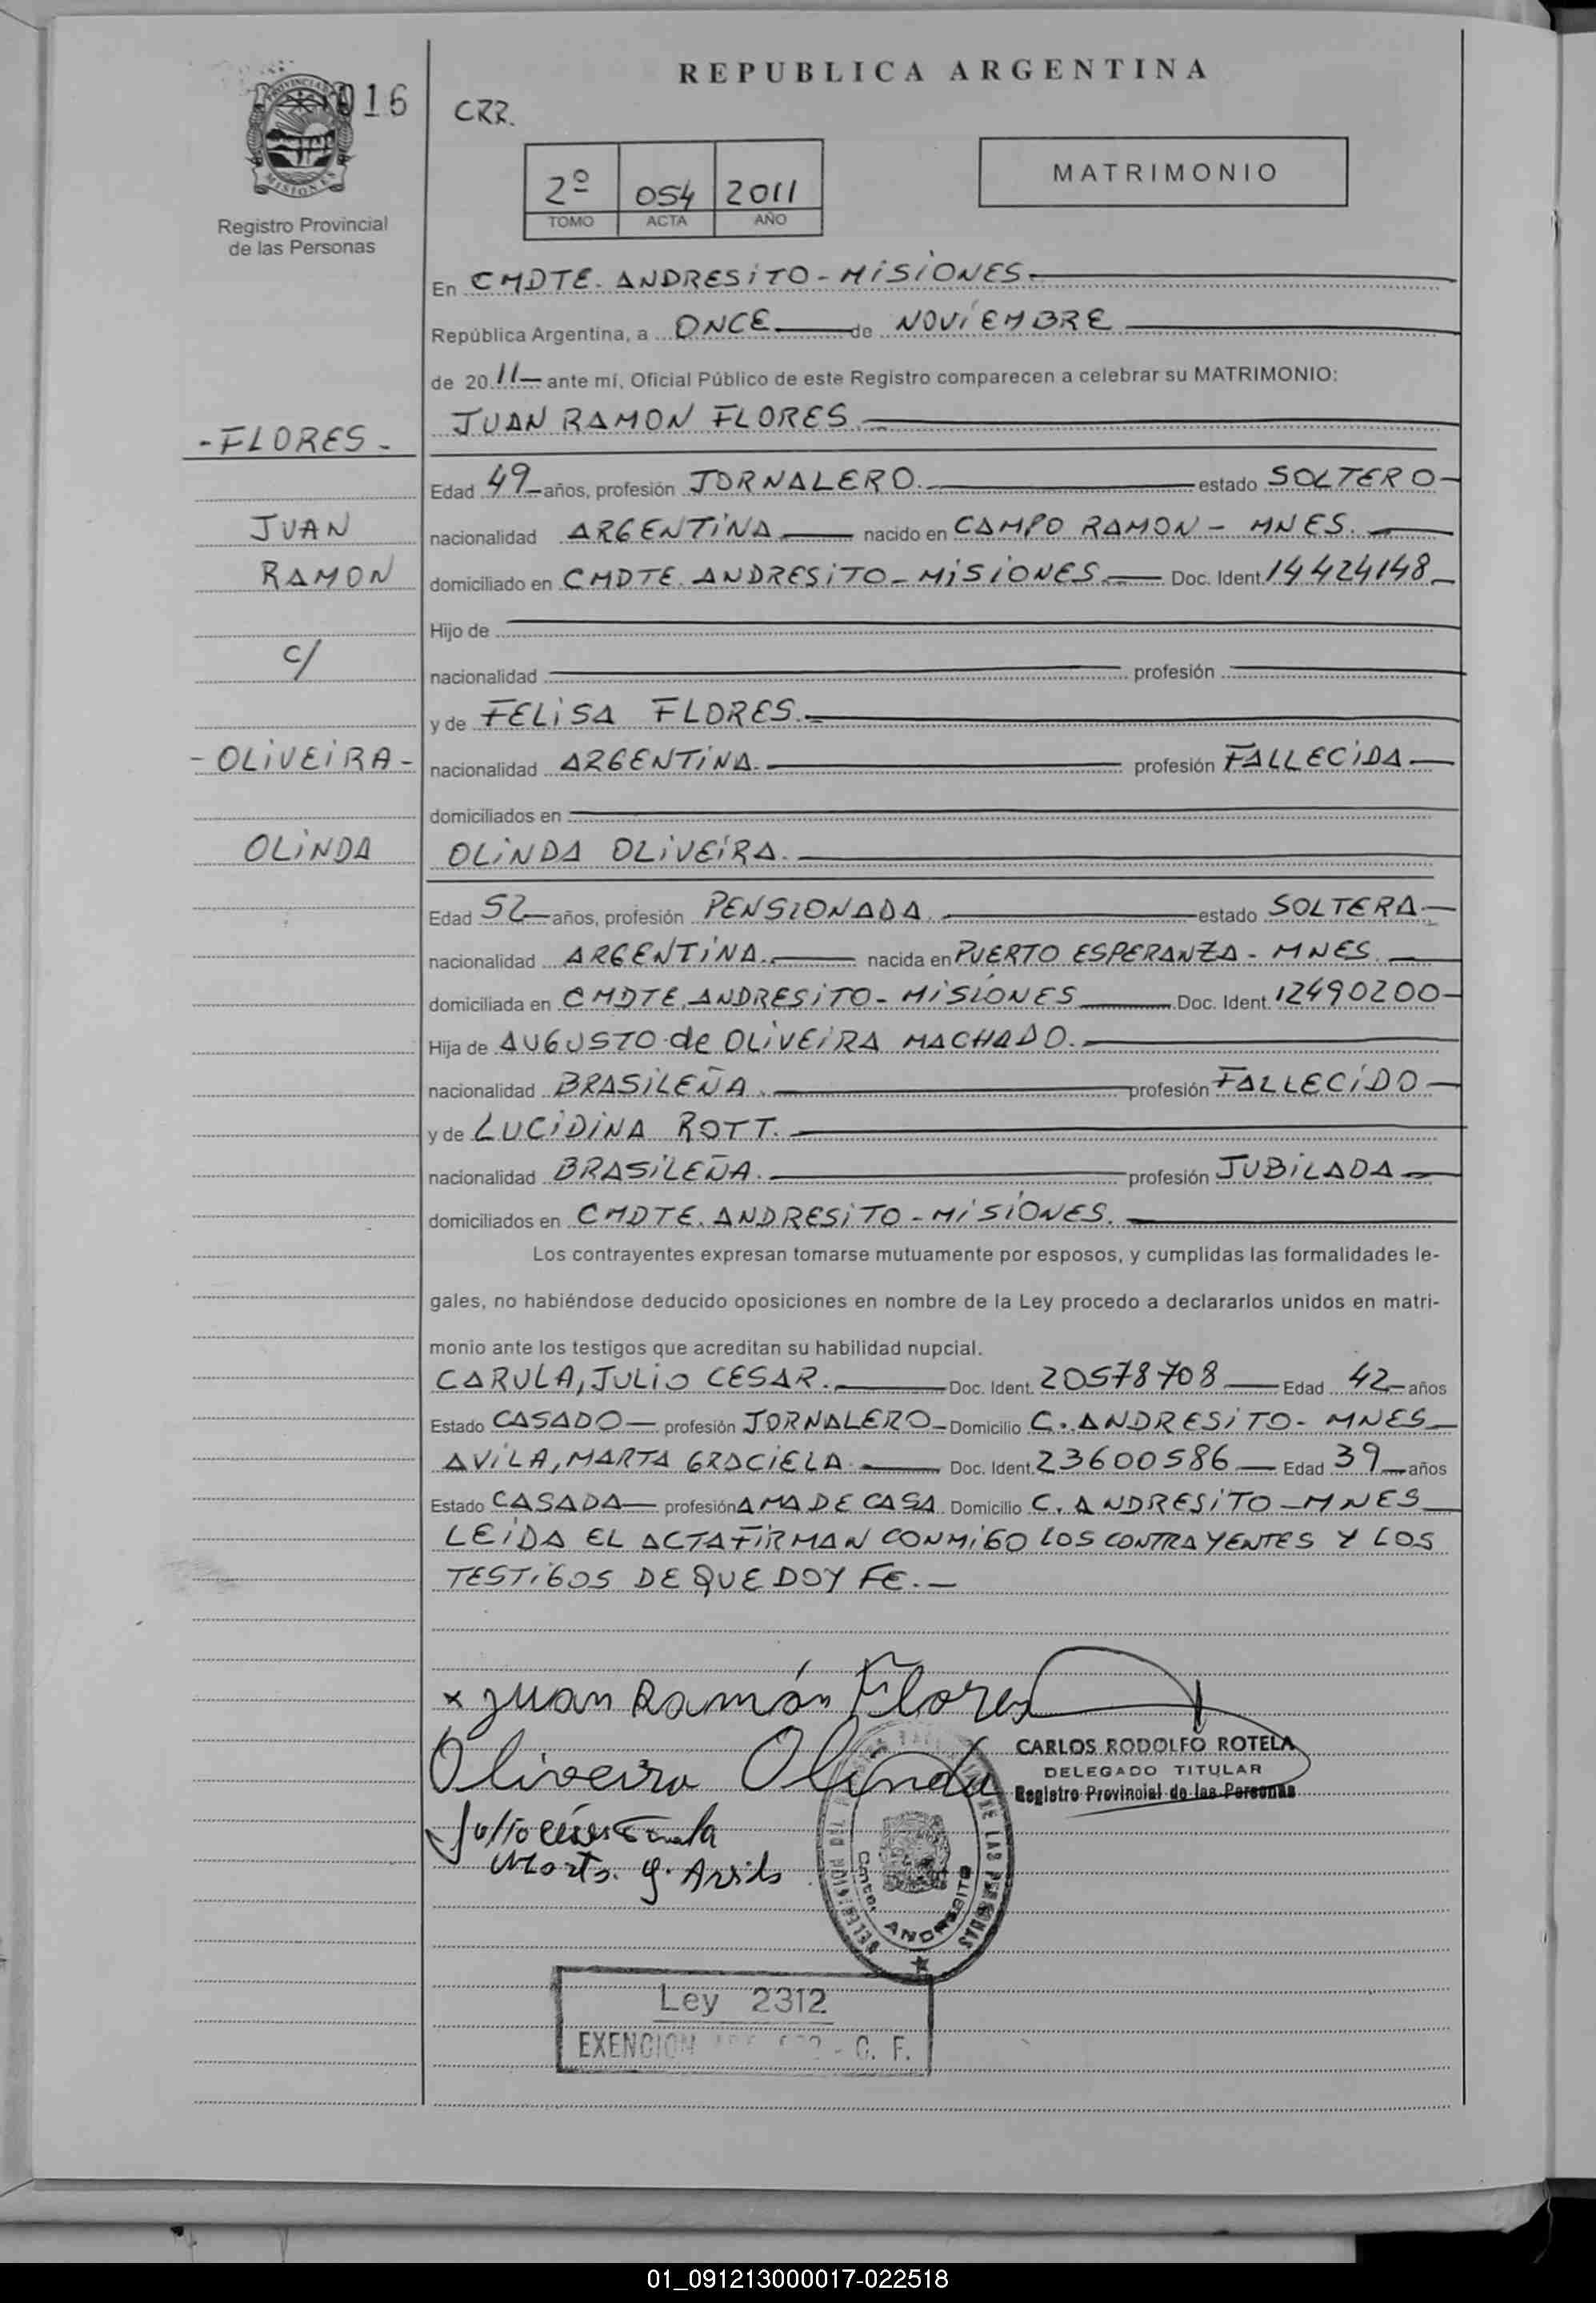 016
PROVINCIA
MISIONES
Registro Provincial
de las Personas
REPUBLICA ARGENTINA
CRR.
2º 054 2011
TOMO ACTA AÑO
MATRIMONIO
En CMDTE. ANDRESITO - MISIONES
República Argentina, a ONCE de NOVIEMBRE
de 2011 ante mí, Oficial Público de este Registro comparecen a celebrar su MATRIMONIO:
- FLORES -
JUAN
RAMON
C/
- OLIVEIRA -
OLINDA
JUAN RAMON FLORES
Edad 49 años, profesión JORNALERO. estado SOLTERO
nacionalidad ARGENTINA nacido en CAMPO RAMON - MNES.
domiciliado en CMDTE. ANDRESITO - MISIONES Doc. Ident. 14424148
Hijo de
nacionalidad profesión
y de FELISA FLORES.
nacionalidad ARGENTINA. profesión FALLECIDA
domiciliados en
OLINDA OLIVEIRA.
Edad 52 años, profesión PENSIONADA. estado SOLTERA
nacionalidad ARGENTINA. nacida en PUERTO ESPERANZA - MNES.
domiciliada en CMDTE. ANDRESITO - MISIONES Doc. Ident. 12490200
Hija de AUGUSTO de OLIVEIRA MACHADO.
nacionalidad BRASILEÑA. profesión FALLECIDO
y de LUCIDINA ROTT.
nacionalidad BRASILEÑA. profesión JUBILADA
domiciliados en CMDTE. ANDRESITO - MISIONES.
Los contrayentes expresan tomarse mutuamente por esposos, y cumplidas las formalidades le-
gales, no habiéndose deducido oposiciones en nombre de la Ley procedo a declararlos unidos en matri-
monio ante los testigos que acreditan su habilidad nupcial.
CARULA, JULIO CESAR. Doc. Ident. 20578708 Edad 42 años
Estado CASADO profesión JORNALERO Domicilio C. ANDRESITO - MNES
AVILA, MARTA GRACIELA Doc. Ident. 23600586 Edad 39 años
Estado CASADA profesión AMA DE CASA Domicilio C. ANDRESITO - MNES
LEIDA EL ACTA FIRMAN CONMIGO LOS CONTRAYENTES Y LOS
TESTIGOS DE QUE DOY FE. -
x Juan Ramón Flores
Oliveira Olinda
CARLOS RODOLFO ROTELA
DELEGADO TITULAR
Registro Provincial de las Personas
Julio
Marta. G. Avila
DE LAS PERSONAS
Cmte. ANDRESITO
Ley 2312
EXENCION - C. F.
01_091213000017-022518